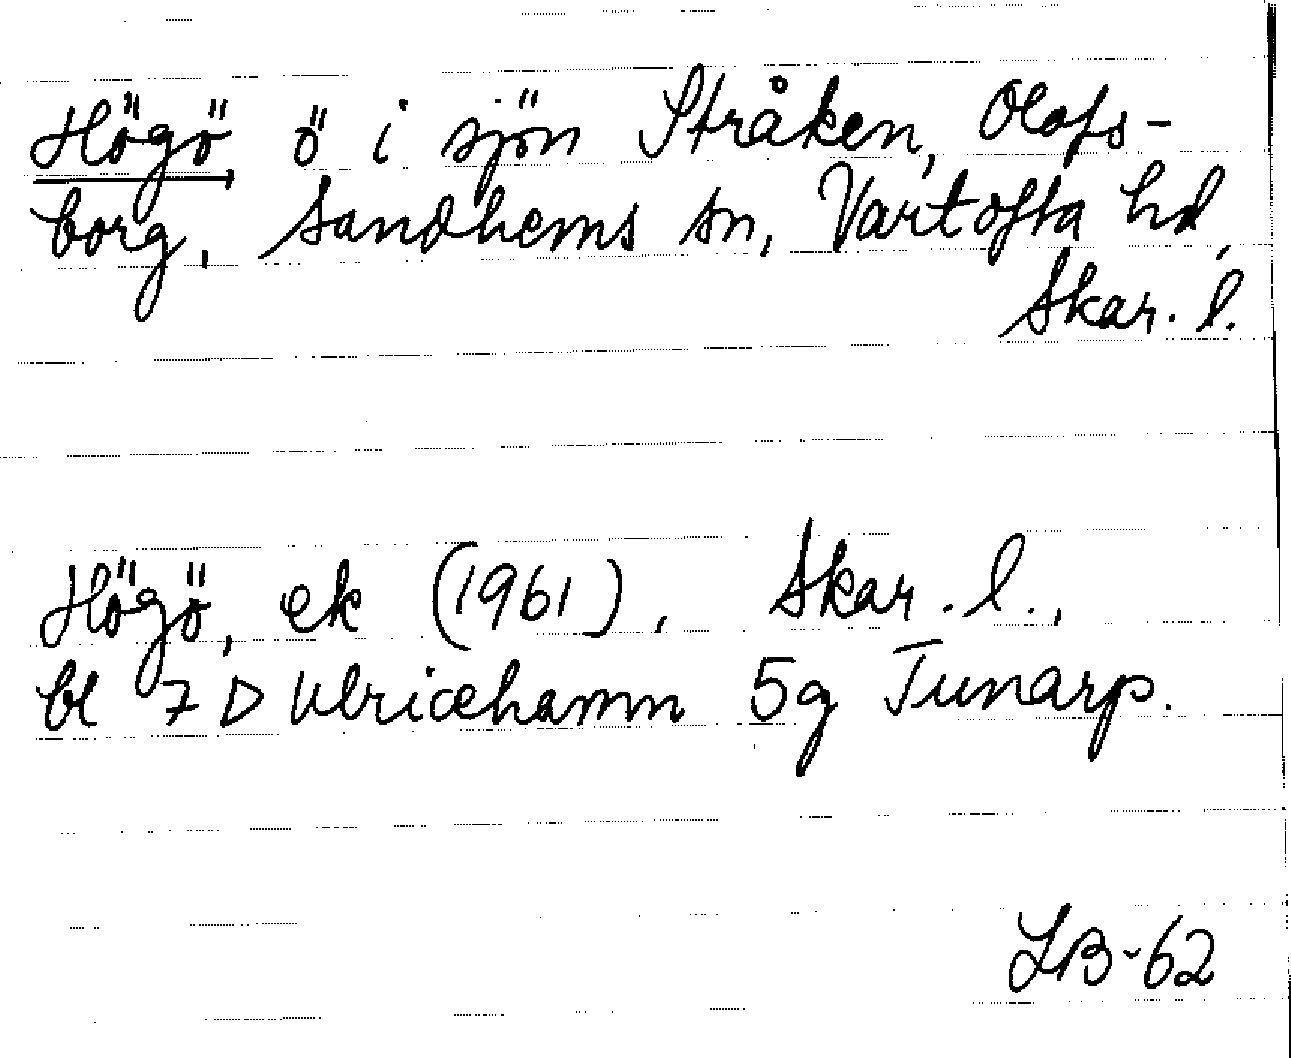 Högö, ö i sjön Stråken, Olofs-
borg, Sandhems sn, Vartofta hd,
Skar. l.
Högö, ek (1961), Skar. l.,
bl 7 D Ulricehamn 5g Tunarp.
LB-62